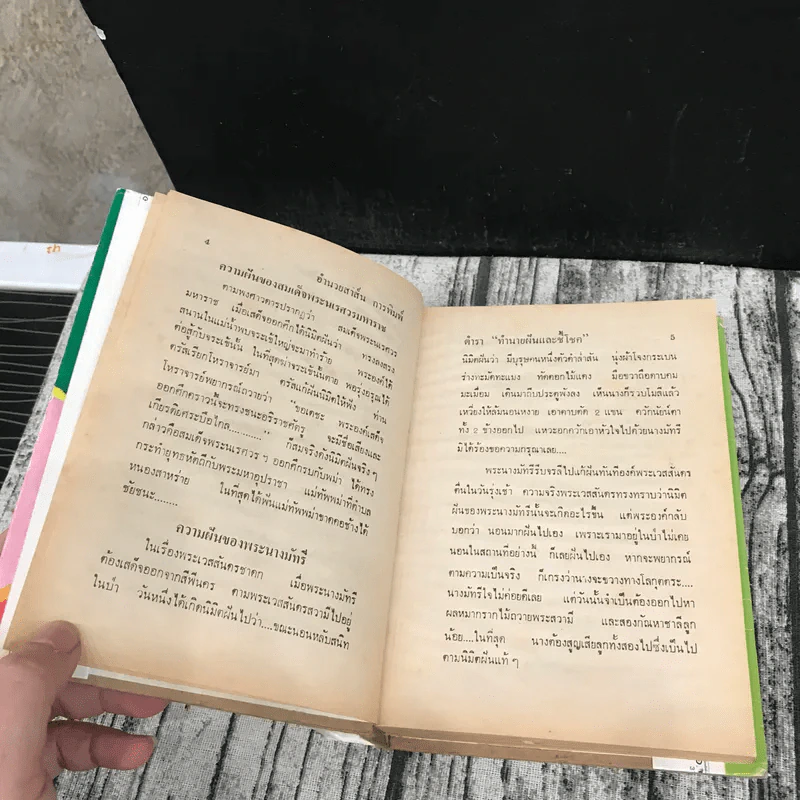 4
อำนวยสาส์น การพิมพ์
ความฝันของสมเด็จพระนเรศวรมหาราช
ตามพงศาวดารปรากฏว่า สมเด็จพระนเรศวร
มหาราช เมื่อเสด็จออกศึกได้นิมิตฝันว่า ทรงลงสรง
สนานในแม่น้ำพบจระเข้ใหญ่จะมาทำร้าย พระองค์ได้
ต่อสู้กับจระเข้นั้น ในที่สุดฆ่าจระเข้นั้นตาย พอรุ่งอรุณได้
ตรัสเรียกโหราจารย์มา ตรัสแก้ฝันนิมิตให้ฟัง ท่าน
โหราจารย์พยากรณ์ถวายว่า "ขอเดชะ พระองค์เสด็จ
ออกศึกคราวนี้จะทรงชนะอริราชศัตรู จะมีชื่อเสียงและ
เกียรติยศระบือไกล............ ก็สมจริงดังนิมิตฝันจริง ๆ
กล่าวคือสมเด็จพระนเรศวร ๆ ออกศึกรบกับพม่า ได้ทรง
กระทำยุทธหัตถีกับพระมหาอุปราชา แม่ทัพพม่าที่ตำบล
หนองสาหร่าย ในที่สุดได้ฟันแม่ทัพพม่าขาดคอช้างได้
ชัยชนะ.......
ความฝันของพระนางมัทรี
ในเรื่องพระเวสสันดรชาดก เมื่อพระนางมัทรี
ต้องเสด็จออกจากสีพีนคร ตามพระเวสสันดรสวามีไปอยู่
ในป่า วันหนึ่งได้เกิดนิมิตฝันไปว่า....ขณะนอนหลับสนิท
ตำรา "ทำนายฝันและชี้โชค" 5
นิมิตฝันว่า มีบุรุษคนหนึ่งตัวดำล่ำสัน นุ่งผ้าโจงกระเบน
ร่างทะมัดทะแมง ทัดดอกไม้แดง มือขวาถือดาบคม
มะเมื่อม เดินมาถึงประตูพังลง เห็นนางก็รวบโมลีแล้ว
เหวี่ยงให้ล้มนอนหงาย เอาดาบตัด 2 แขน ควักนัยน์ตา
ทั้ง 2 ข้างออกไป แหวะอกควักเอาหัวใจไปด้วยนางมัทรี
มิได้ร้องขอความกรุณาเลย....
พระนางมัทรีรีบจรลีไปแก้ฝันทันทีองค์พระเวสสันดร
ตื่นในวันรุ่งเช้า ความจริงพระเวสสันดรทรงทราบว่านิมิต
ฝันของพระนางมัทรีนั้นจะเกิดอะไรขึ้น แต่พระองค์กลับ
บอกว่า นอนมากฝันไปเอง เพราะเรามาอยู่ในป่าไม่เคย
นอนในสถานที่อย่างนี้ ก็เลยฝันไปเอง หากจะพยากรณ์
ตามความเป็นจริง ก็เกรงว่านางจะขวางทางโลกุตตระ....
นางมัทรีใจไม่ค่อยดีเลย แต่วันนั้นจำเป็นต้องออกไปหา
ผลหมากรากไม้ถวายพระสวามี และสองกัณหาชาลีลูก
น้อย....ในที่สุด นางต้องสูญเสียลูกทั้งสองไปซึ่งเป็นไป
ตามนิมิตฝันแท้ ๆ